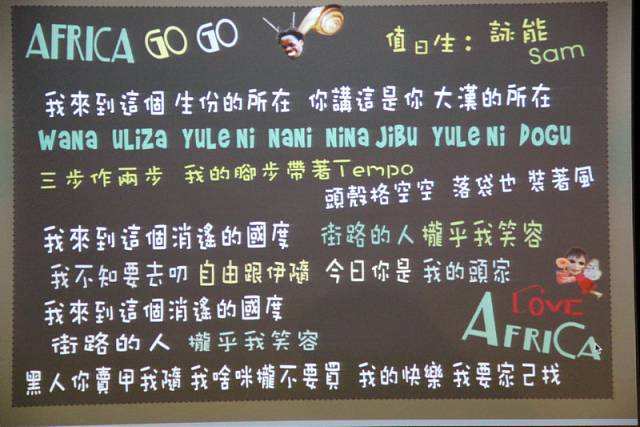 AFRICA GO GO
值日生：詠能
Sam
我來到這個 生份的所在 你講這是你 大漢的所在
WANA ULIZA YULE NI NANI NINA JIBU YULE NI DOGU
三步作兩步 我的腳步帶著Tempo
頭殼格空空 落袋也 裝著風
我來到這個消遙的國度 街路的人 攏乎我笑容
我不知要去叨 自由跟伊隨 今日你是 我的頭家
我來到這個消遙的國度
街路的人 攏乎我笑容
LOVE
AFRICA
黑人你賣甲我隨 我啥咪攏不要買 我的快樂 我要家己找